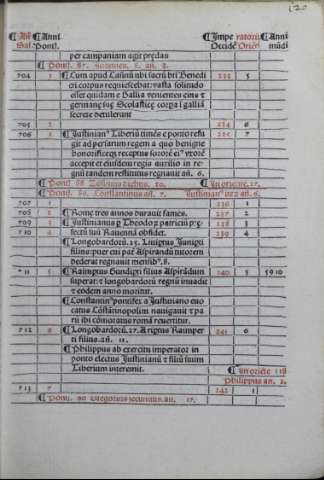 120
Añi Sal. Añi Pont. Impe Occidē ratorū Oriēt. Añi mūdi
per campaniam agit prędas
Pont. 87. Joannes. 6. an. 3.
704 1 Cum apud Casinū ubi sacrū bti Benedi 233 5
cti corpus requiescebat: vasta solitudo
esset quidam e Gallia venientes eius et
germanę suę Scolasticę corpa i galliā
secrete detulerunt
705 2 234 6
706 3 Justinian⁹ Liberiū timēs e ponto refu 235 7
git ad persarum regem a quo benigne
honorificeqȝ receptus sororē ei⁹ vxorē
accepit et eiusdem regis auxilio in re
gnū tandem restitutus regnauit añ. 6.
Pont. 88 Zosimus diebus. 20. In oriēte. 27.
Pont. 89. Constantinus añ. 7. Justinian⁹ añ. 6.
707 1 236 1
708 2 Rome tres annos durauit fames. 237 2
709 3 Justinianus p Theodoȝ patriciū pre 238 3
710 4 fectū suū Rauennā obsidet. 239 4
Longobardorū. 25. Liuiprus Junipti
filius: puer cui pat⁹ Aspirandū tutorem
dederat regnauit mensib⁹. 8.
711 Raimptus Gundipti filius Aspirādum 240 5 5910
superat: et longobardorū regnū inuadit
et eodem anno moritur.
Constantin⁹ pontifex a Justiniano euo
catus Cōstātinopolim nauigauit et pa
rū ibi cōmoratus romā reuertitur.
712 6 Longobardorū. 27. Aripus Raimper 241 6
ti filius. añ. 11.
Philippus ab exercitu imperator in
ponto electus Justinianū et filiū suum
Liberium interemit. In oriēte
Philippus an. 2.
713 7 242 1
Pont. 90 Gregorius secundus. añ. 17.